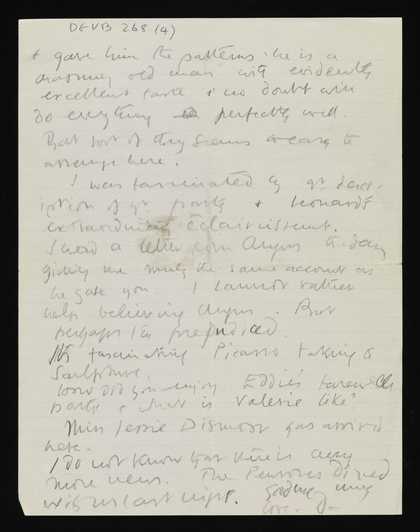 DEVB 268 (4)
& gave him the patterns. he is a
charming old man with evidently
excellent taste & no doubt will
do everything perfectly well.
That sort of thing seems so easy to
arrange here.
I was fascinated by yr descr-
iption of yr party & Leonard's
extraordinary éclaircissement.
I had a letter from Angus to-day
giving me much the same account as
he gave you. I cannot rather
help believing Angus. But
perhaps I'm prejudiced.
It's fascinating Picasso taking to
Sculpture.
How did you enjoy Eddie's farewell
party & what is Valerie like?
Miss Jessie Dismorr has arrived
here.
I do not know that there is any
more news. The Penroses dined
with us last night. Goodbye my
love. D